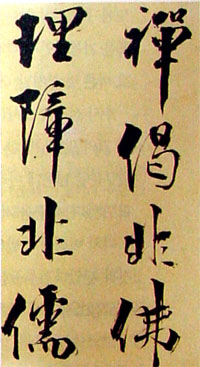 禪偈非佛
理障非儒